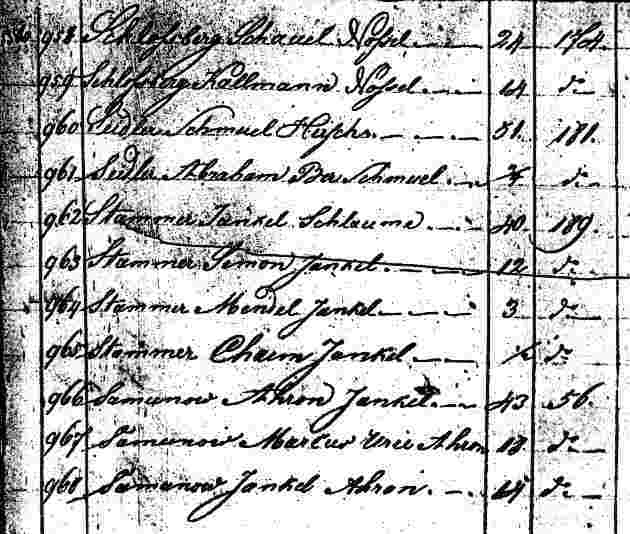 958 Schlossberg Schauel Nossel 24 174.
959 Schlossberg Kallmann Nossel 14 do
960 Seidler Schmuel Hirsch. 51. 181.
961 Seidler Abraham Ber Schmuel do
962 Stammer Jankel Schlaume 40 189.
963 Stammer Simon Jankel. 12 do
964 Stammer Mendel Jankel 3 do
965 Stammer Chaim Jankel do
966 Samunow Ahron Jankel. 43 56.
967 Samunow Markus Ahron 18 do
968 Samunow Jankel Ahron. do